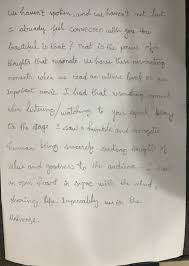 We haven't spoken, and we haven't met but
I already feel CONNECTED with you. How
beautiful is that? That is the power of
thoughts that resonate. We have these resonating
moments when we read an article, book or
movie. I had that resonating moment
when listening/watching to your speech. Being
On the stage I saw a humble and energetic
human being sincerely sending thoughts of
value and goodness to the audience. I saw
an open heart in sync with the mind,
sharing life. Impeccably
Universe.